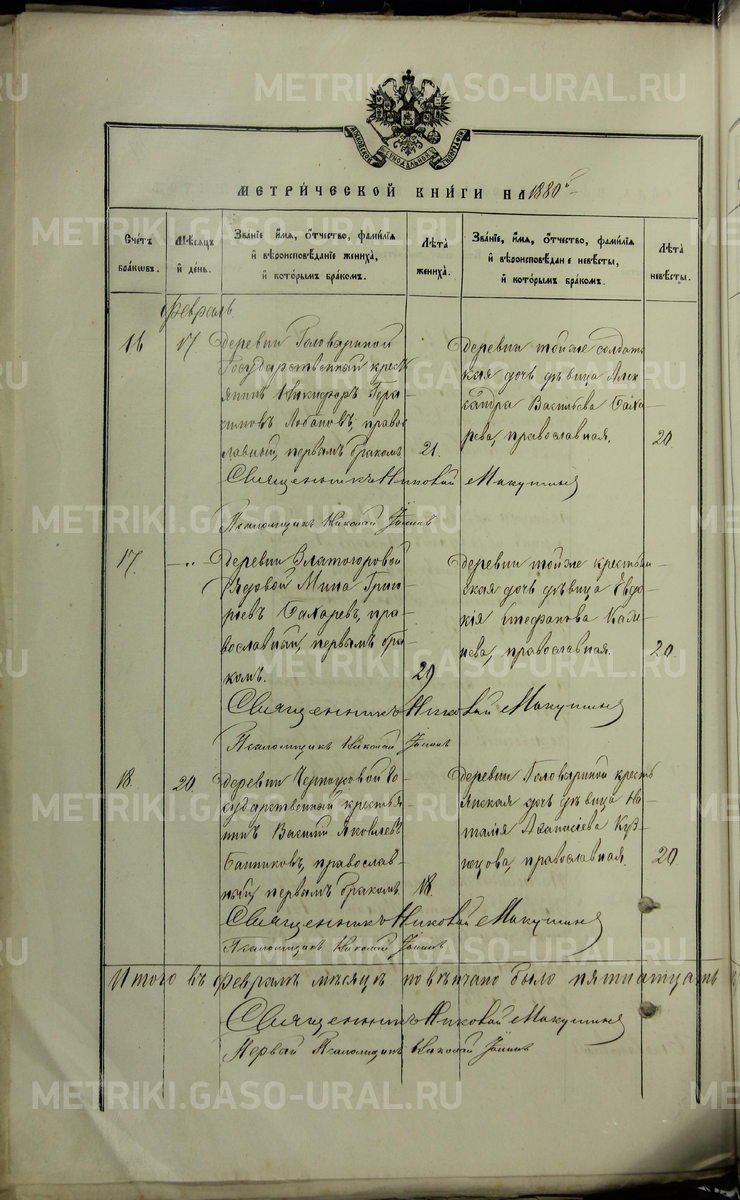 METRIKI.GASO-URAL.RU
МОСКОВСКОЙ СѴНОДАЛЬНОЙ ТИПОГРАФІИ
МЕТРИ́ЧЕСКОЙ КНИ́ГИ НА 1880 й
Счетъ бра́кωвъ.
Мѣ́сяцъ и҆ де́нь.
Зва́нїе, и҆́мѧ, ѻ҆́тчество, фами́лїѧ и҆ вѣроисповѣ́данїе жениха̀, и҆ кото́рымъ бра́комъ.
Лѣ́та жениха̀.
Зва́нїе, и҆́мѧ, ѻ҆́тчество, фами́лїѧ и҆ вѣроисповѣ́данїе невѣ́сты, и҆ кото́рымъ бра́комъ.
Лѣ́та невѣ́сты.
Февраль
16
17
деревни Головыриной
Государственный крест
янинъ Никифоръ Гера
симовъ Лобановъ, право
славный, первымъ бракомъ
21.
деревни тойже солдат
ская дочь дѣвица Алек
сандра Васильева Баха
рева, православная.
20
Священникъ Николай Макушинъ
Псаломщикъ Николай
17.
— „ —
деревни Златогоровой
рядовой Мина Григо
рьевъ Бахаревъ, пра
вославный, первымъ бра
комъ.
29
деревни тойже крестьян
ская дочь дѣвица Евдо
кія Стефанова Калм
нева, православная.
20
Священникъ Николай Макушинъ
Псаломщикъ Николай
18.
20.
деревни Черноусовой Го
сударственный крестья
нинъ Василій Яковлевъ
Банниковъ, православ
ный, первымъ бракомъ.
18.
деревни Головыриной кресть
янская дочь дѣвица На
талія Аѳанасіева Куз
нецова, православная.
20
Священникъ Николай Макушинъ
Псаломщикъ Николай
Итого въ Февралѣ мѣсяцѣ повѣнчано было пятнатцать
Священникъ Николай Макушинъ
Первый Псаломщикъ Николай